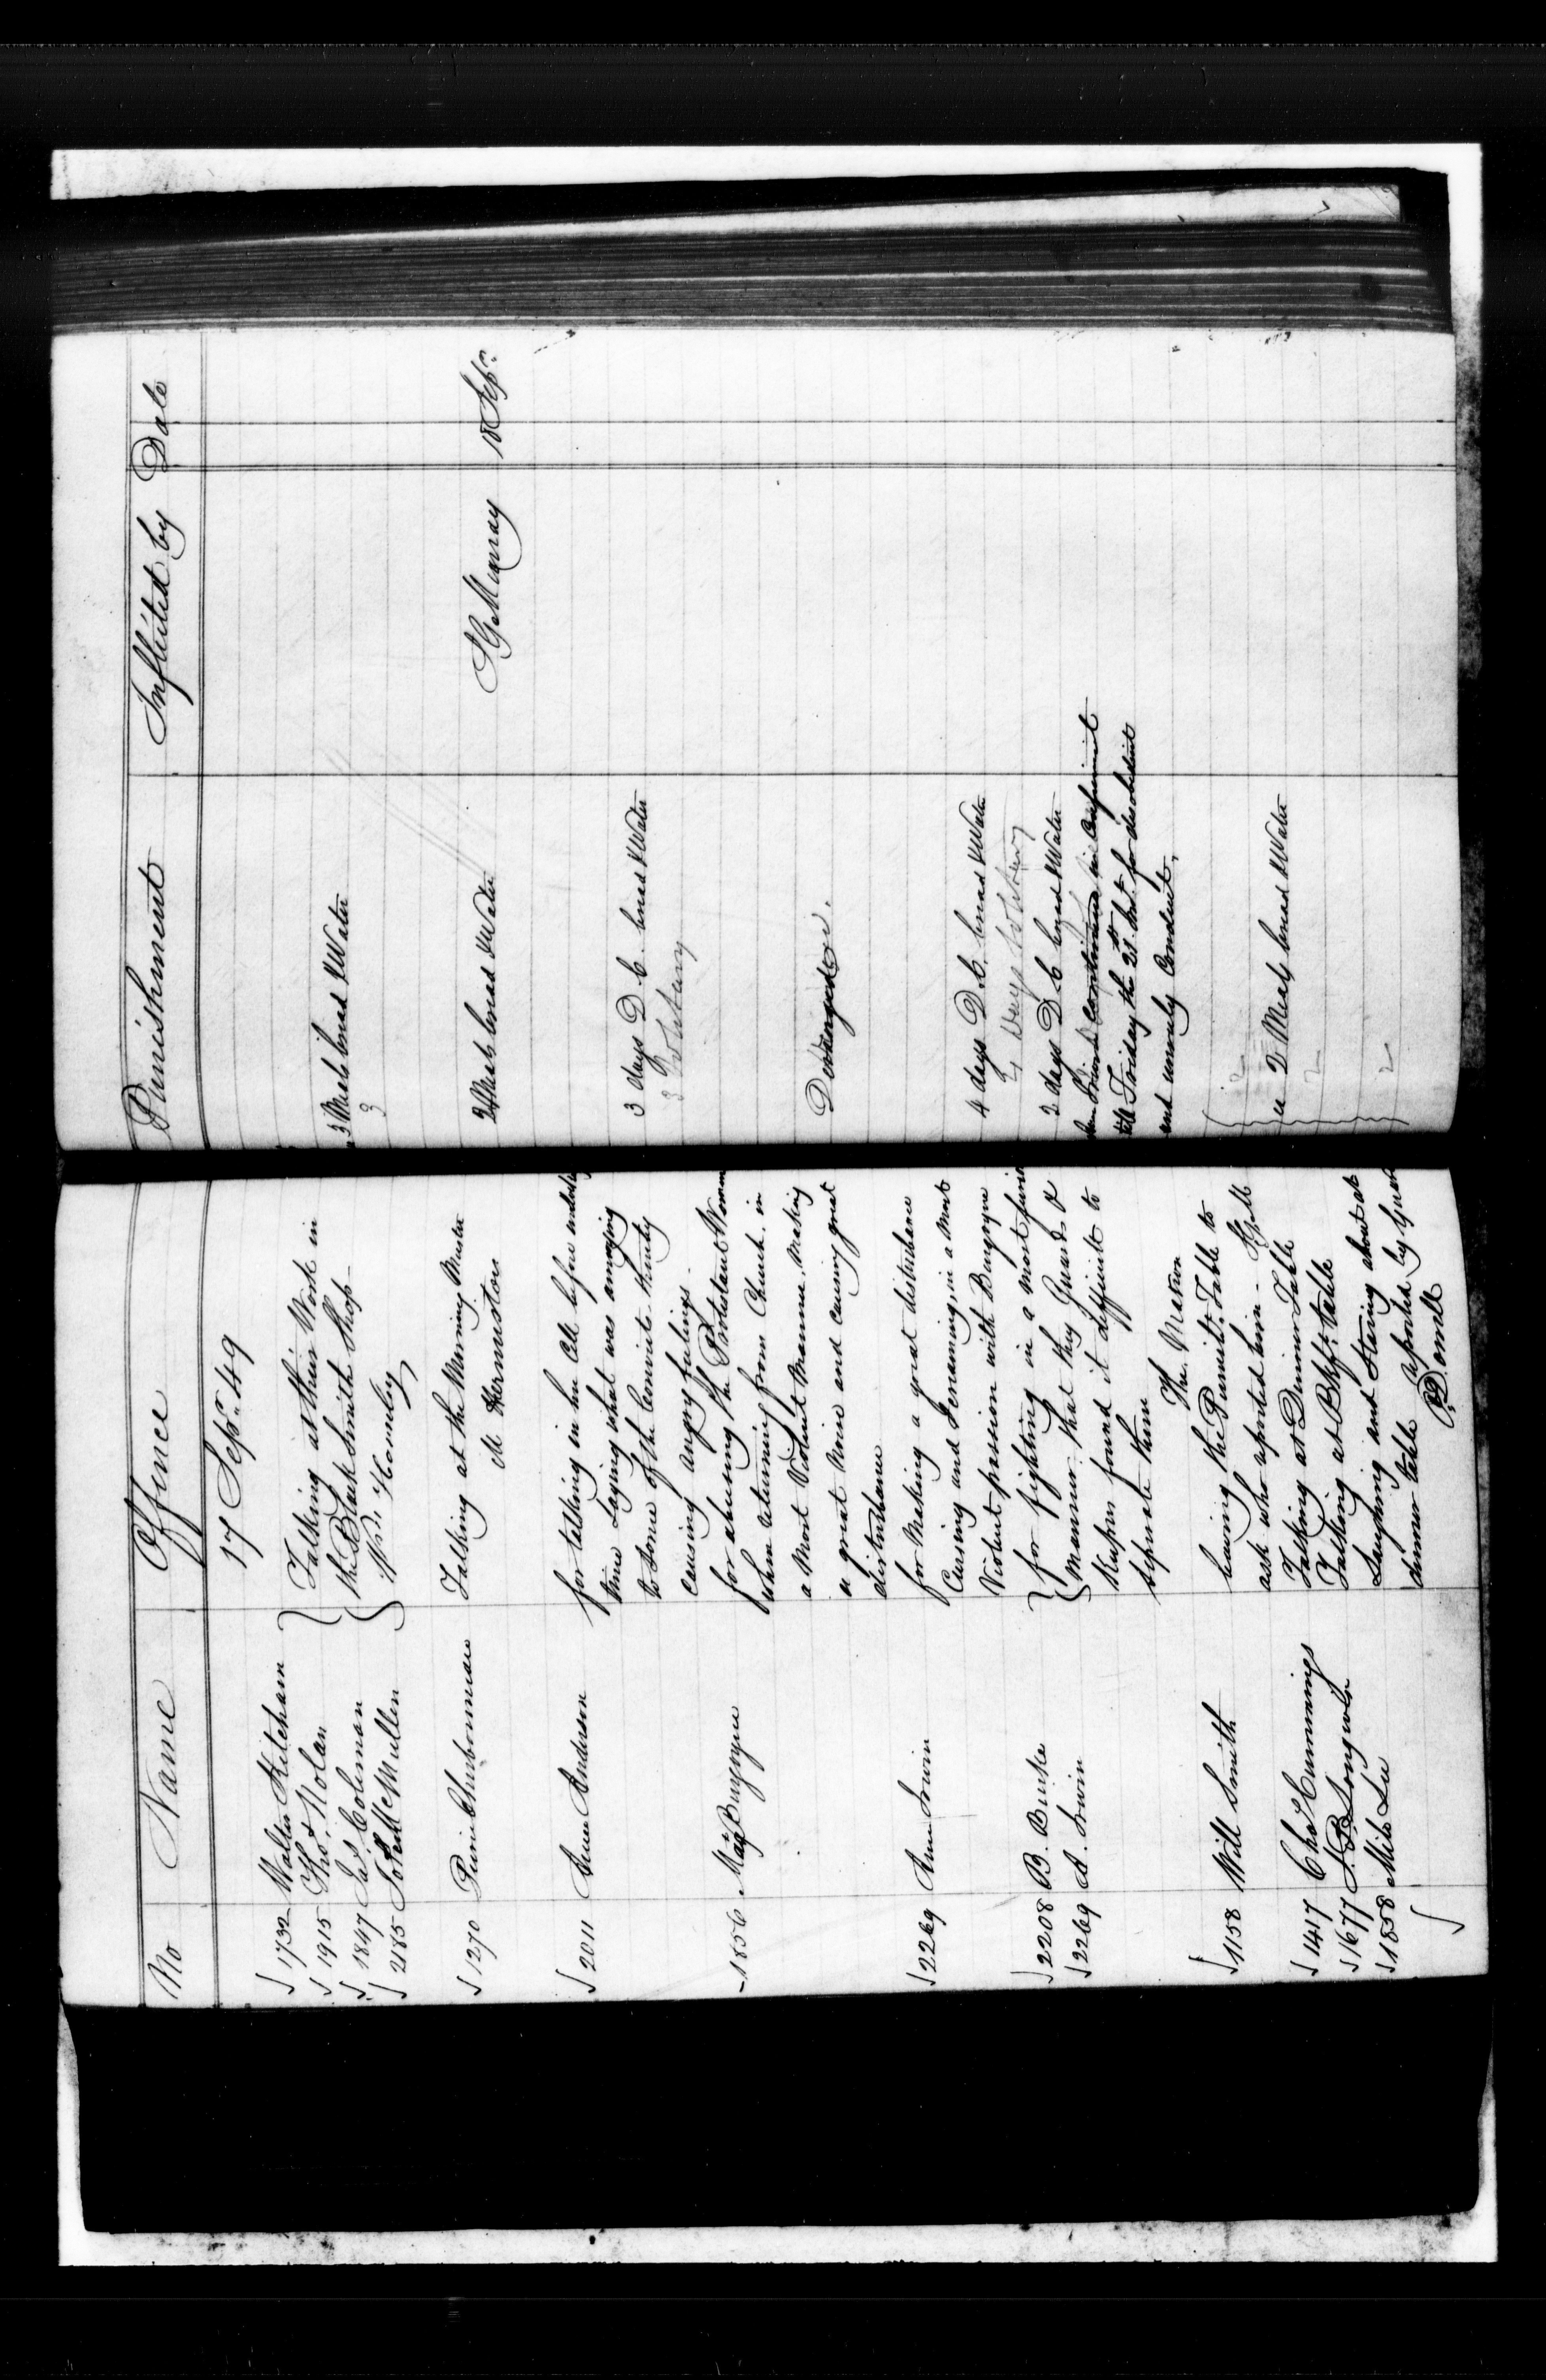 No Name Offence Punishment Inflicted by Date
17 Sepr. 49
1732 Walter Kitcham Talking at their Work in
1915 Thos. Nolan the Blacksmith Shop - 3 Meals bread & Water
1847 Jas. Coleman Wm. 3
2185 John McMullen
1270 Talking at the Morning Muster 2 Meals bread & Water Murray 18 Sepr.
M
2011 Anne Anderson for talking in her Cell before
time Saying what was annoying
to some of the Convicts thereby 3 days D.C. bread & Water
causing angry feelings - 3 Solitary
1856 Mag Burgoyne for abusing the Protestant Women
when returning from Church. in
a Most Violent Manner, Making
a great Noise and causing great
disturbance
2269 Ann Irwin for Making a great disturbance
Cursing and Screaming, in a Most 4 days D.C. bread & Water
Violent passion with Burgoyne 4 Days Solitary
2208 B. Burke for fighting in a Most 2 days D.C. bread & Water
2269 A. Irwin Manner. that they Guards & continued in Confinement
found it difficult to till Friday the 21st Inst. for disobedient
Seperate them and unruly Conduct.
The Matron
1158 Will Smith leaving the Table to 2
ask who reported him -
1417 Chas. Cummings Talking at Dinner Table 2 Meals bread & Water
1677 Talking at Bkft. table 2
1858 Milo Lee Laughing and Staring about at
dinner table reported by 2